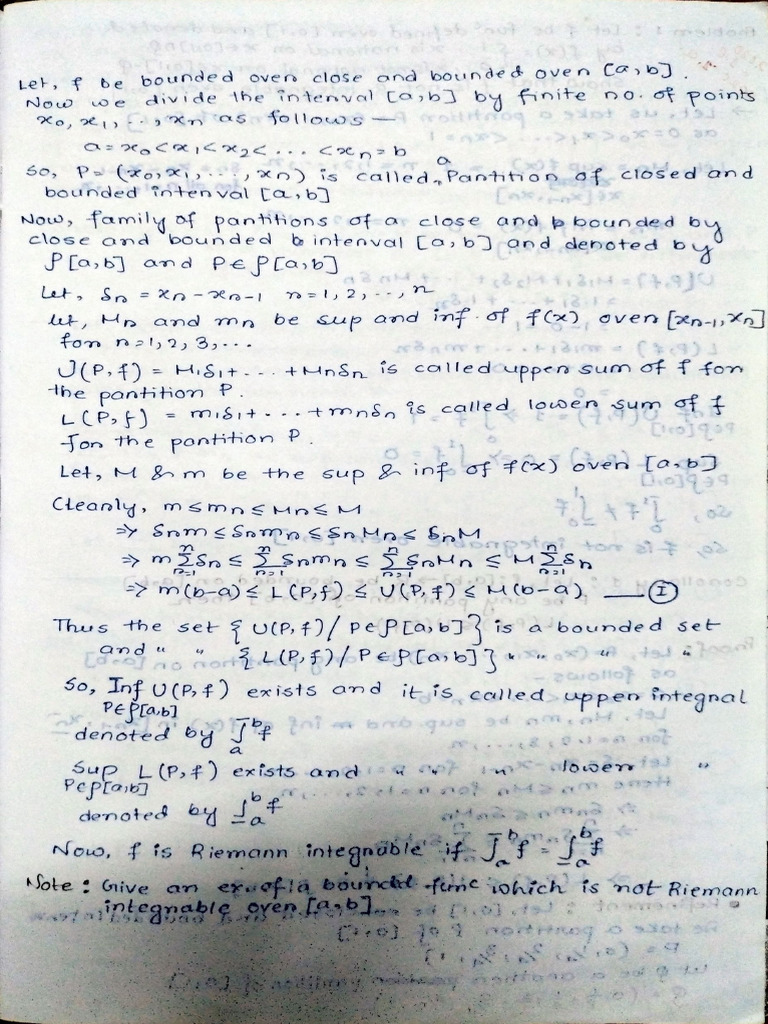 Let, f be bounded over close and bounded over [a,b].
Now we divide the interval [a,b] by finite no. of points
x₀, x₁, . ., xₙ as follows —
a = x₀ < x₁ < x₂ < . . . < xₙ = b
So, P = (x₀, x₁, . . ., xₙ) is called a Partition of closed and
bounded interval [a,b]
Now, family of partitions of a close and bounded by
close and bounded interval [a,b] and denoted by
ρ[a,b] and P ∈ ρ[a,b]
Let, δₙ = xₙ - xₙ₋₁ n = 1, 2, . . ., n
let, Mₙ and mₙ be sup and inf. of f(x) over [xₙ₋₁, xₙ]
for n = 1, 2, 3, . . .
U(P, f) = M₁δ₁ + . . . + Mₙδₙ is called upper sum of f for
the partition P.
L(P, f) = m₁δ₁ + . . . + mₙδₙ is called lower sum of f
for the partition P.
Let, M & m be the sup & inf of f(x) over [a,b]
Clearly, m ≤ mₙ ≤ Mₙ ≤ M
⇒ δₙm ≤ δₙmₙ ≤ δₙMₙ ≤ δₙM
⇒ m ∑ₙ₌₁ⁿ δₙ ≤ ∑ₙ₌₁ⁿ δₙmₙ ≤ ∑ₙ₌₁ⁿ δₙMₙ ≤ M ∑ₙ₌₁ⁿ δₙ
⇒ m(b-a) ≤ L(P, f) ≤ U(P, f) ≤ M(b-a) — Ⓘ
Thus the set { U(P, f) / P ∈ ρ[a,b] } is a bounded set
and " " { L(P, f) / P ∈ ρ[a,b] } " " " "
So, Inf U(P, f) exists and it is called upper integral
P∈ρ[a,b]
denoted by ∫̅ₐᵇ f
Sup L(P, f) exists and " " " lower "
P∈ρ[a,b]
denoted by ∫̲ₐᵇ f
Now, f is Riemann integrable if ∫̅ₐᵇ f = ∫̲ₐᵇ f
Note : Give an ex. of a bounded func which is not Riemann
integrable over [a,b]